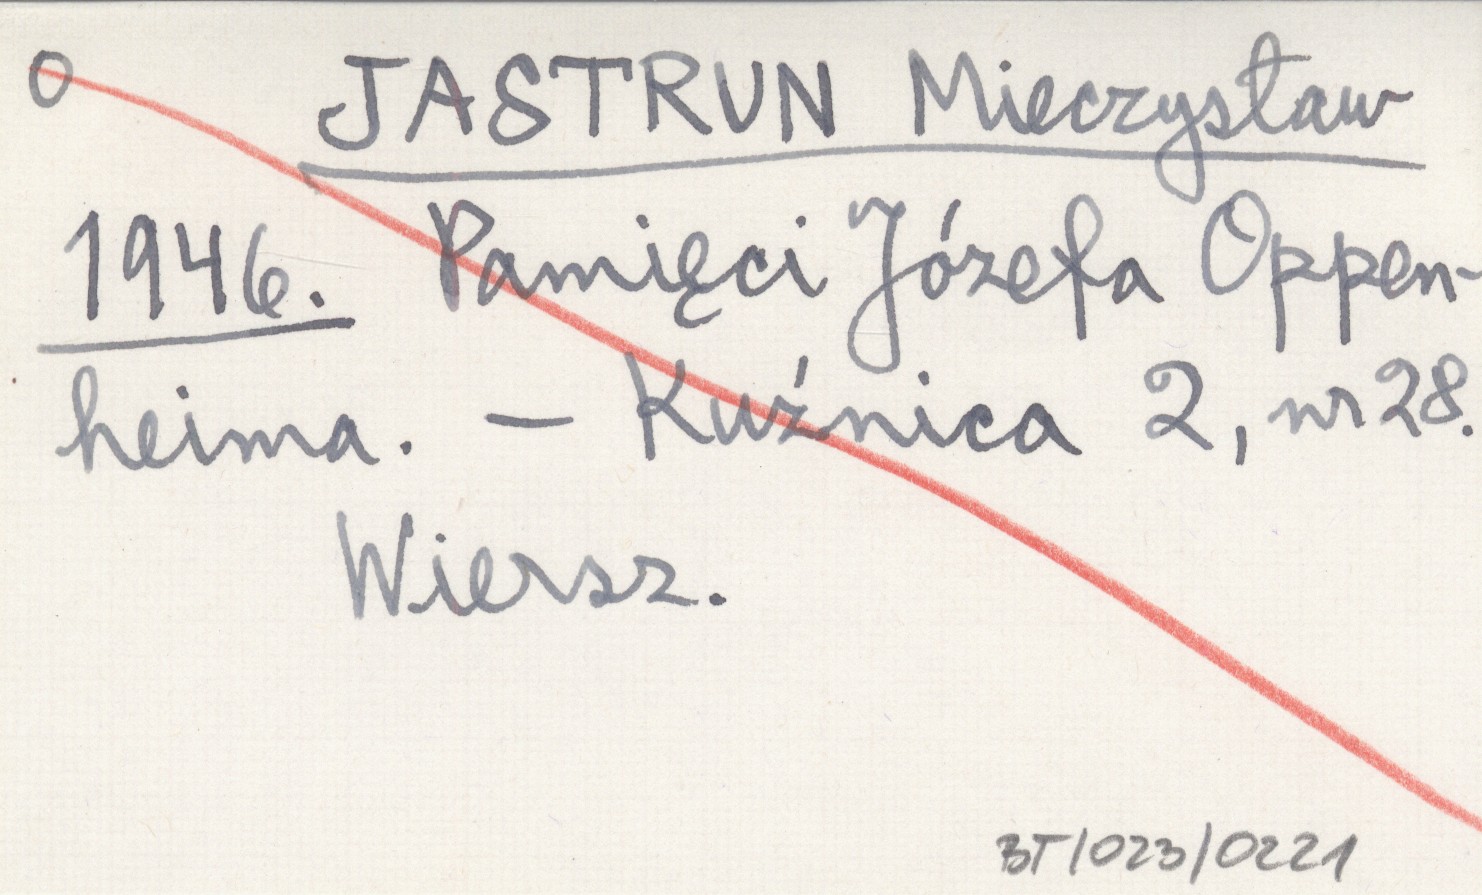 O JASTRUN Mieczysław
1946. Pamięci Józefa Oppen-
heima. — Kuźnica 2, nr 28.
Wiersz.
BT/023/0221